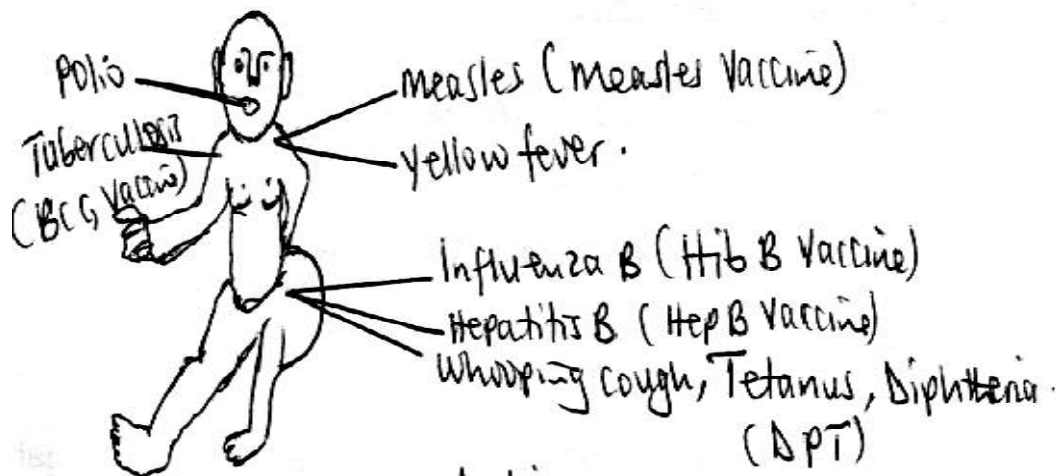 Polio
Tuberculosis
(BCG Vaccine)
measles (measles Vaccine)
yellow fever.
Influenza B (Hib B Vaccine)
Hepatitis B (Hep B Vaccine)
Whooping cough, Tetanus, Diphtheria.
(DPT)